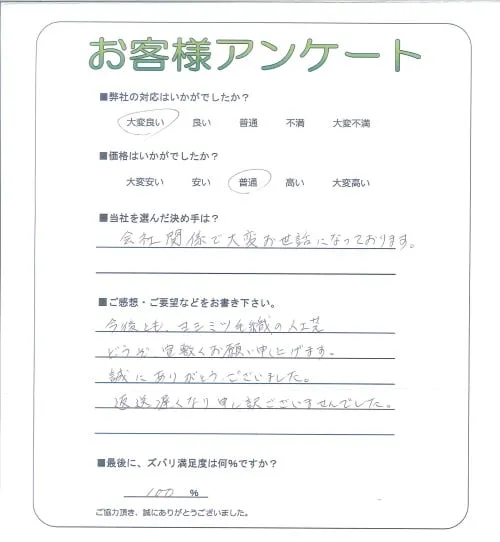 お客様アンケート
■弊社の対応はいかがでしたか？
大変良い 良い 普通 不満 大変不満
■価格はいかがでしたか？
大変安い 安い 普通 高い 大変高い
■当社を選んだ決め手は？
会社関係で大変お世話になっております。
■ご感想・ご要望などをお書き下さい。
今後とも、ヨシミツ組織の人工芝
どうぞ宜敷くお願い申し上げます。
誠にありがとうございました。
返送遅くなり申し訳ございませんでした。
■最後に、ズバリ満足度は何％ですか？
100 ％
ご協力頂き、誠にありがとうございました。